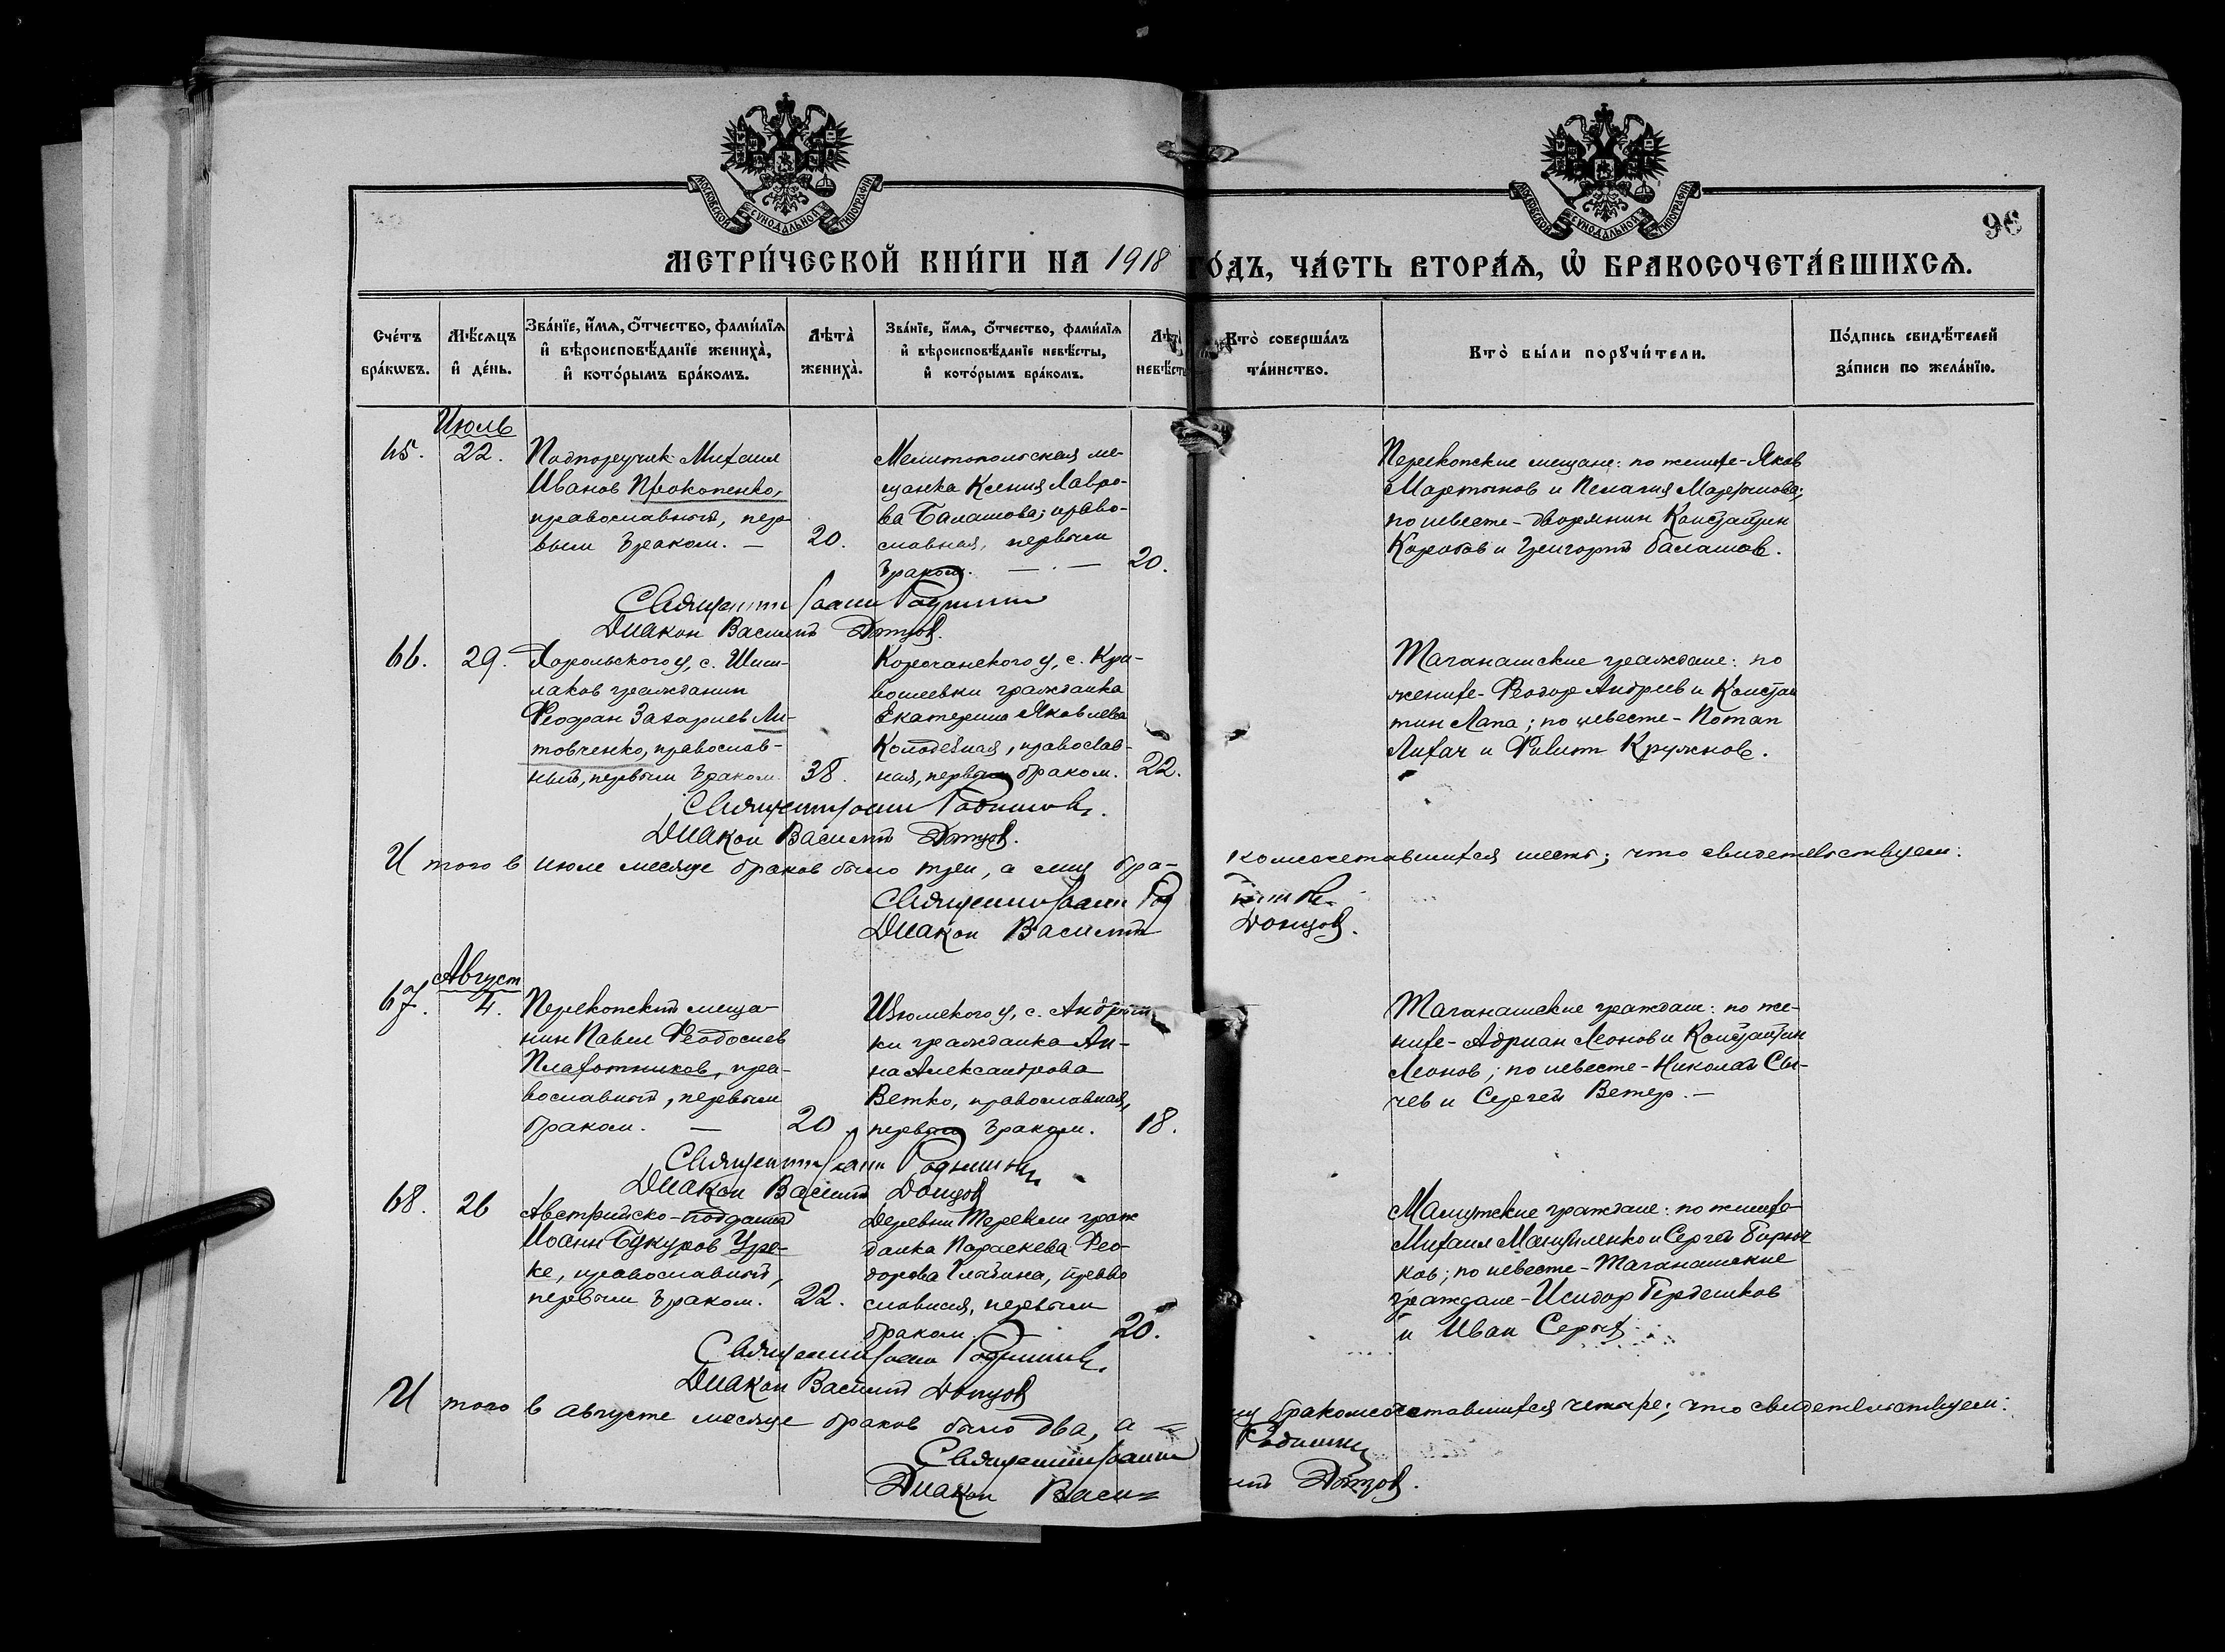 МОСКОВСКОЙ СѴНОДАЛЬНОЙ ТИПОГРАФІИ
МОСКОВСКОЙ СѴНОДАЛЬНОЙ ТИПОГРАФІИ
96
МЕТРИ́ЧЕСКОЙ КНИ́ГИ НА 1918 ГО́ДЪ, ЧА́СТЬ ВТОРА́Ѧ, Ѽ БРАКОСОЧЕТА́ВШИХСѦ.
Сче́тъ бра́кѡвъ.
Мѣ́сѧцъ и҆ де́нь.
Зва́нїе, и҆́мѧ, ѻ҆́тчество, фами́лїѧ
и҆ вѣроисповѣ́данїе женихà,
и҆ кото́рымъ бра́комъ.
Лѣтà женихà.
Зва́нїе, и҆́мѧ, ѻ҆́тчество, фами́лїѧ
и҆ вѣроисповѣ́данїе невѣ́сты,
и҆ кото́рымъ бра́комъ.
Лѣтà невѣ́сты
Ктò соверша́лъ
та́инство.
Ктò бы́ли порꙋчи́тели.
По́дпись свидѣ́телей
за́писи по жела́нїю.
Июль
65. 22. Подпоручик Михаил
Иванов Прокопенко,
православный, пер-
вым браком. — 20.
Мелитопольская ме-
щанка Ксения Лавро-
ва Балашова; право-
славная, первым
браком. — . — 20.
Перекопские мещане: по женихе - Яков
Мартынов и Пелагия Мартынова;
по невесте - дворянин Константин
Коротов и Григорий Балашов.
Священник Иоанн
Диакон Василий Донцов.
66. 29. Хорольского у, с. Шиш-
лаков гражданин
Феофан Захариев Ли-
товченко, православ-
ный, первым браком 38.
Корочанского у, с. Кри-
вошеевки гражданка
Екатерина Яковлева
Колодезная, православ-
ная, первым браком. 22.
Таганашские граждане: по
женихе - Феодор Андреев и Констан
тин Лапа; по невесте - Потап
Лихач и Филипп Кружнов.
Священник Иоанн
Диакон Василий Донцов.
И того в июле месяце браков было три, а лиц бра-
комсочетавшихся шесть; что свидетельствуем:
Священник Иоанн
Диакон Василий Донцов.
Август
67. 4. Перекопский меща-
нин Павел Феодосиев
Плахотников, пра-
вославный, первым
браком. — 20.
Изюмского у, с. Андреев
ки гражданка Ан-
на Александрова
Ветко, православная,
первым браком. 18.
Таганашские граждане: по же-
нихе - Адриан Леонов и Константин
Леонов; по невесте - Николай Сы-
чев и Сергей Ветер. —
Священник Иоанн
Диакон Василий Донцов
68. 26 Австрийско-подданый
Иоанн Букуров Уре-
ке, православный,
первым браком. 22.
Деревни Терекли граж
данка Параскева Фео-
дорова, право
славная, первым
браком. 20.
граждане: по женихе
Михаил и Сергей
ков; по невесте - Таганашские
граждане - Исидор Бердешков
и Иван Серых
Священник Иоанн
Диакон Василий Донцов
И того в августе месяце браков было два, а
лиц бракомсочетавшихся четыре; что свидетельствуем:
Священник Иоанн
Диакон Васи=
лий Донцов.